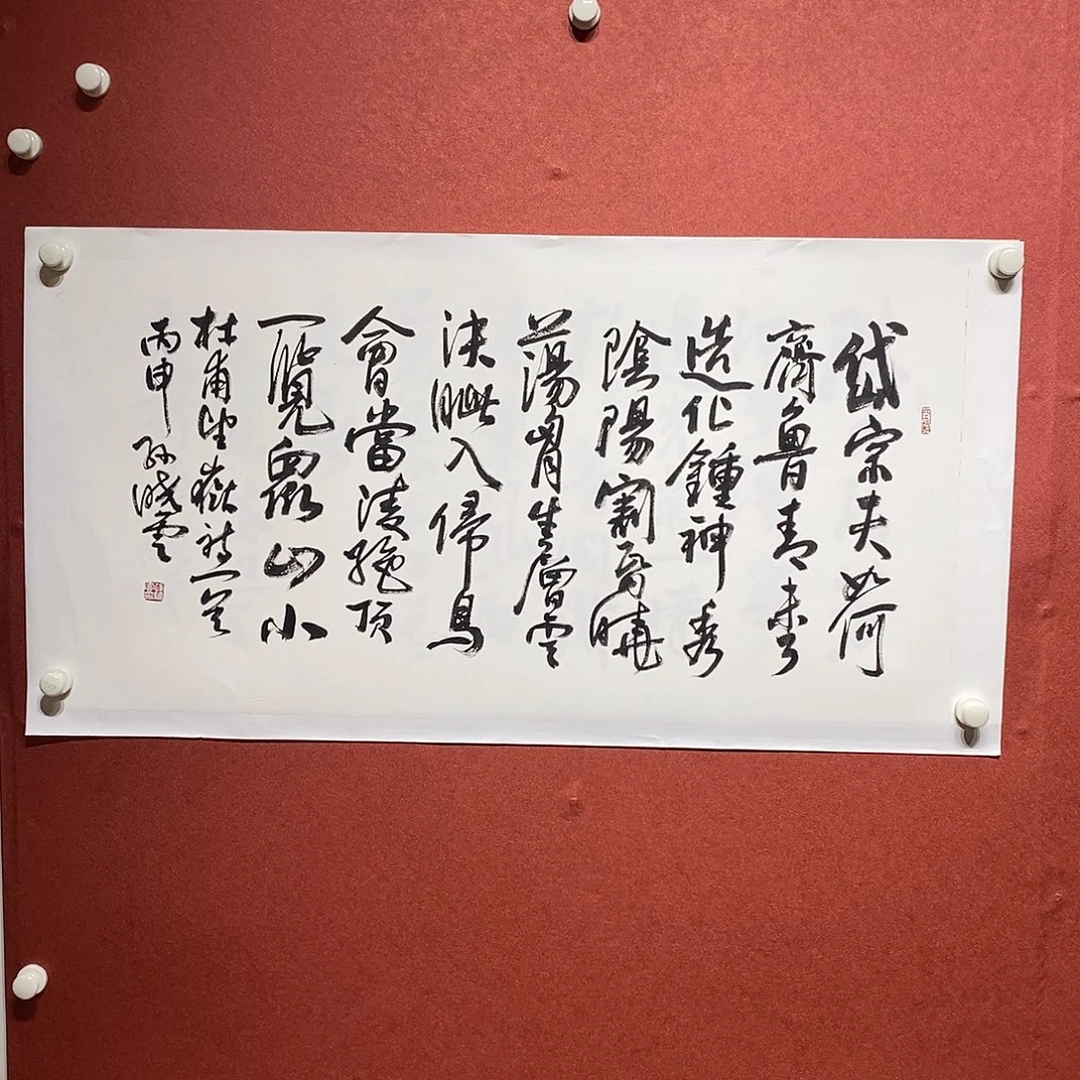 岱宗夫如何
齊魯青未了
造化鍾神秀
陰陽割昏曉
蕩胷生層雲
決眦入歸鳥
會當凌絕頂
一覽眾山小
杜甫望嶽詩一首
丙申孫曉雲